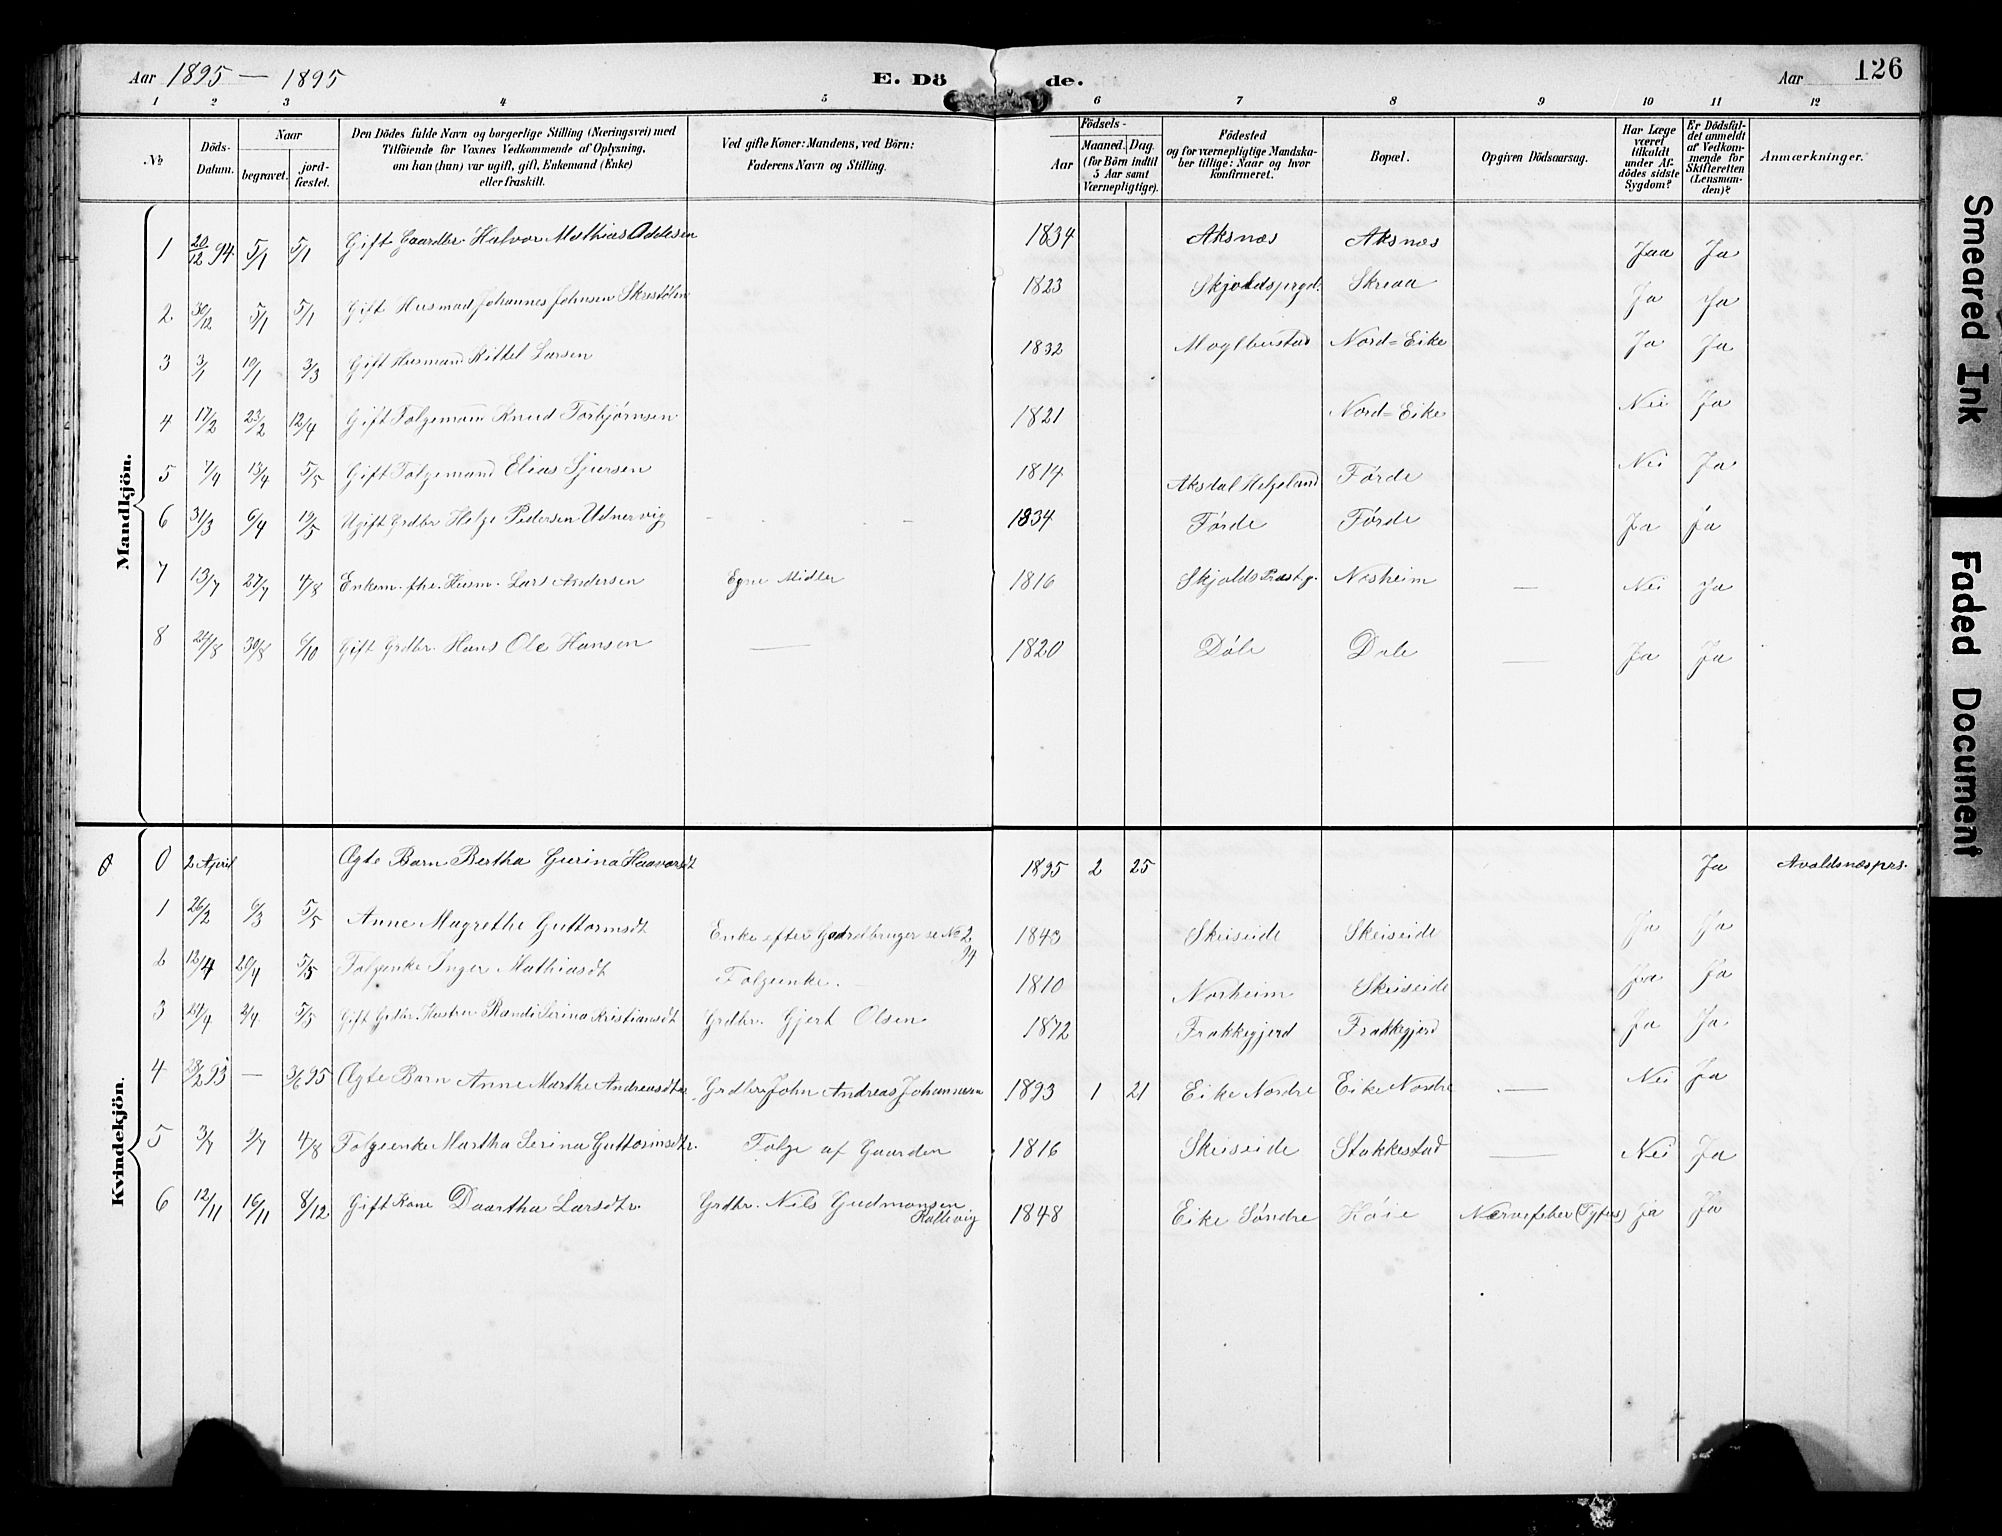 Aar 1895 — 1895 E. Dö de. Aar 126
1 2 3 4 5 6 7 8 9 10 11 12
No Döds-Datum. Naar begravet. jord-fæstet. Den Dödes fulde Navn og borgerlige Stilling (Næringsvei) med Tilföiende for Voxnes Vedkommende af Oplysning, om han (hun) var ugift, gift, Enkemand (Enke) eller fraskilt. Ved gifte Koner: Mandens, ved Börn: Faderens Navn og Stilling. Aar Födsels- Maaned. Dag. (for Börn indtil 5 Aar samt Værnepligtige). Födested og for værnepligtige Mandska-ber tillige: Naar og hvor konfirmeret. Bopæl. Opgiven Dödsaarsag. Har Læge været tilkaldt under Af-dödes sidste Sygdom? Er Dödsfal-det anmeldt af Vedkom-mende for Skifteretten (Lensman-den)? Anmærkninger.
Mandkjön.
1 20/12 94. 5/1 5/1 Gift Gaardbr. Halvor Mathias Oddesen 1834 Aksnæs Aksnæs Jaa Ja
2 30/12 5/1 5/1 Gift Husmad Johannes Johnsen 1823 Skjoldsprgd. Skreaa Ja Ja
3 3/1 10/1 3/3 Gift Husmand Kittel Larsen 1832 Nord=Eike Ja Ja
4 17/2 23/2 12/4 Gift Folgemann Knud Torbjørnsen 1821 Nord=Eike Nei Ja
5 7/4 13/4 5/5 Gift Folgemand Elias Sjursen 1814 Aksdal Helgeland Førde Nei Ja
6 31/3 6/4 19/5 Ugift Grdbr. Helge Pedersen Udnervig - - 1834 Førde Førde Ja Ja
7 13/7 27/7 4/8 Enkem. fhv. Husm. Lars Andersen Egne Midler 1816 Skjolds Præstg. Næsheim — Nei Ja
8 /8 30/8 6/10 Gift Grdbr. Hans Ole Hansen — 1820 Dale — Ja Ja
Kvindekjön.
0 0 2 April Ægte Barn Bertha Gurina Haavarsdt 1895 2 25 Ja Avaldsnæs prs.
1 26/2 6/3 5/5 Anne Magrethe Guttormsdt Enke efter Gardbruger se No 2 94 1843 Skeiseide Skeiseide Ja Ja
2 12/4 20/4 5/5 Folgeenke Inger Mathiasdt Folgeenke. 1810 Norheim Skeiseide Ja Ja
3 /4 /4 5/5 Gift Grdbr. Hustru Randi Serina Kristiansdt Grdbr. Gjert Olsen 1872 Frakkegjerd Frakkegjerd Ja Ja
4 28/2 95 — 3/6 95 Ægte Barn Anne Marthe Andreasdtr Grdbr John Andreas Johannesen 1893 1 21 Eike Nordre Eike Nordre — Nei Ja
5 3/7 9/7 4/8 Folgeenke Martha Serina Guttormsdtr. Folge af Gaarden 1816 Skeiseide Stakkestad — Nei Ja
6 12/11 16/11 8/12 Gift Kone Daartha Larsdtr. Grdbr. Nils Gudmonsen Rallevig 1848 Eike Søndre Høie Nervefeber (Tyfus) Ja Ja
Smeared Ink
Faded Document